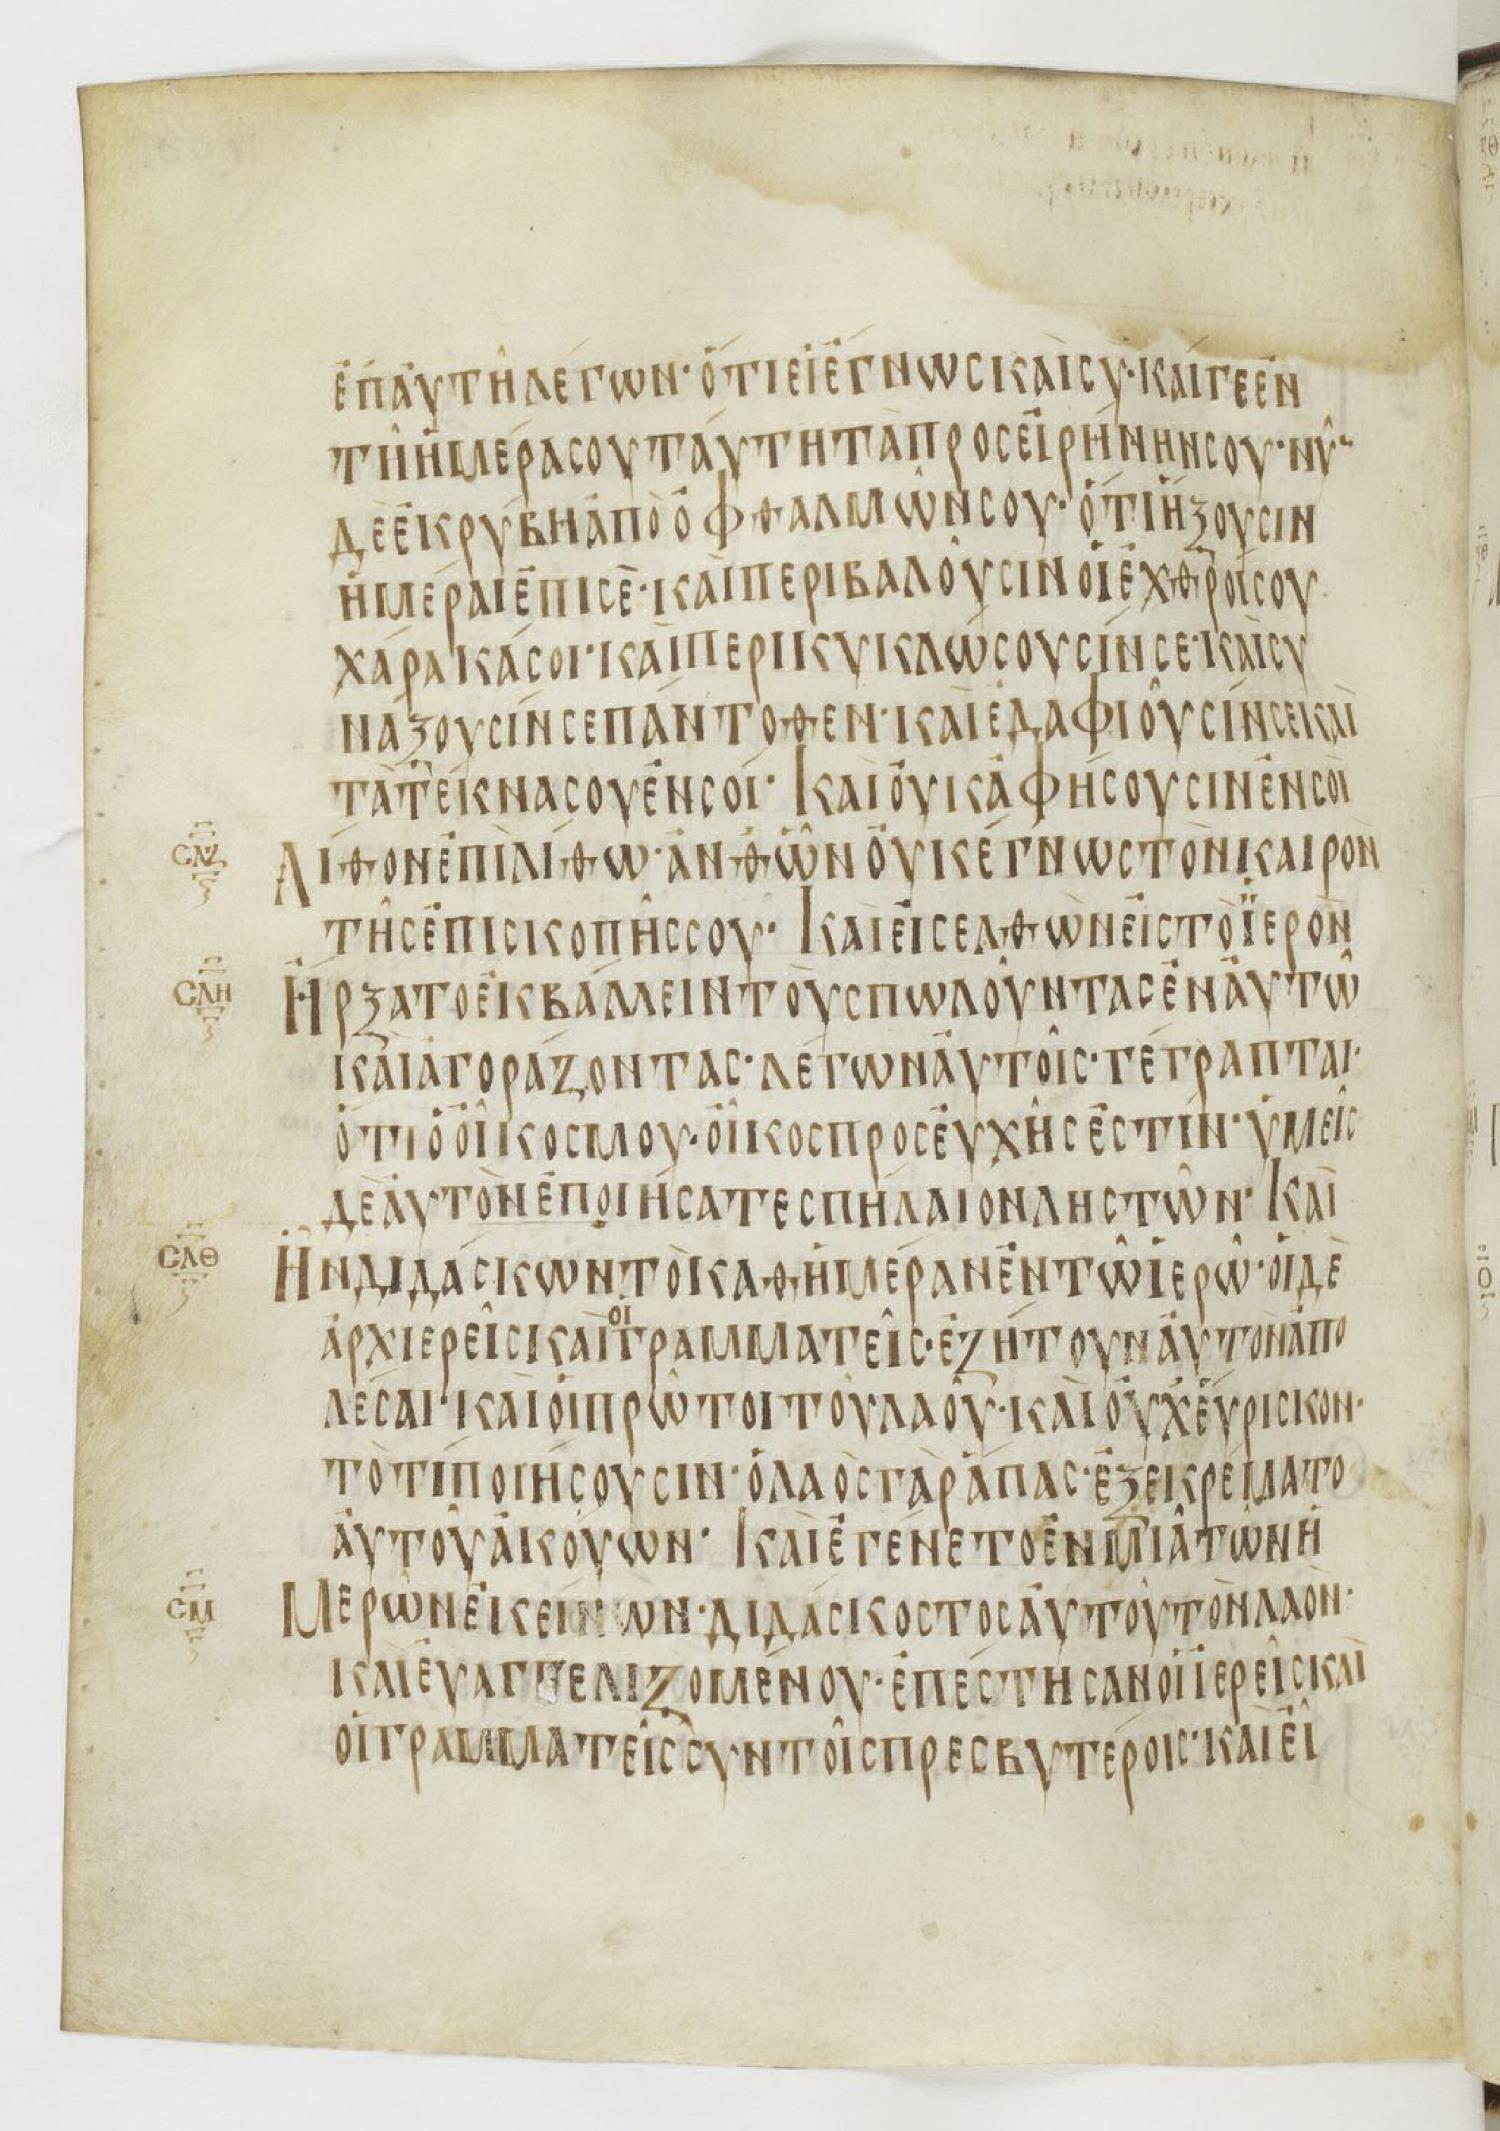 ἐπ' αὐτῆ λέγων· ὅτι εἰ ἔγνως καὶ σύ· καί γε ἐν
τῆ ἡμέρα σου ταύτη τὰ προς εἰρήνην σου· νῦ
δὲ ἐκρύβη ἀπὸ ὀφθαλμῶν σου· ὅτι ἥξουσιν
ἡμέραι ἐπὶ σὲ· καὶ περιβαλοῦσιν οἱ ἐχθροί σου
χάρακά σοι· καὶ περικυκλώσουσίν σε· καὶ συ
νάξουσίν σε πάντοθεν· καὶ ἐδαφιοῦσίν σε καὶ
τὰ τέκνα σου ἐν σοί· Και οὐκ ἀφήσουσιν ἐν σοὶ
ΣΛΖ Λίθον ἐπὶ λίθω· ἀνθ' ὧν οὐκ ἔγνως τὸν καιρὸν
τῆς ἐπισκοπῆς σου· Και εἰσελθὼν εἰς τὸ ϊερὸν
ΣΛΗ Ἤρξατο ἐκβάλλειν τοὺς πωλοῦντας ἐν αὐτῶ
καὶ ἀγοράζοντας· λέγων αὐτοῖς· γέγραπται·
ὅτι ὁ οἶκος μου· οἶκος προσευχῆς ἐστίν· ὑμεῖς
δὲ αὐτὸν ἐποιήσατε σπήλαιον ληστῶν· Καὶ
ΣΛΘ Ἦν διδάσκων τὸ καθ' ἡμέραν ἐν τῶ ἱερῶ· οἱ δὲ
ἀρχιερεῖς καὶ οἱ γραμματεῖς· ἐζήτουν αὐτον ἀπο
λέσαι· καὶ οἱ πρῶτοι τοῦ λαοῦ· καὶ οὐχ εὕρισκον·
τὸ τί ποιήσουσιν· ὁ λαὸς γὰρ ἅπας· ἐξεκρέματο
αὐτοῦ ἀκούων· Και ἐγένετο ἐν μιᾶ τῶν ἡ
ΣΜ Μερῶν ἐκείνων· διδάσκοστος αὐτοῦ τὸν λαὸν·
καὶ εὐαγγελιζομένου· ἐπέστησαν οἱ ϊερεῖς καὶ
οἱ γραμματεῖς σὺν τοῖς πρεσβυτέροις· καὶ εἶ